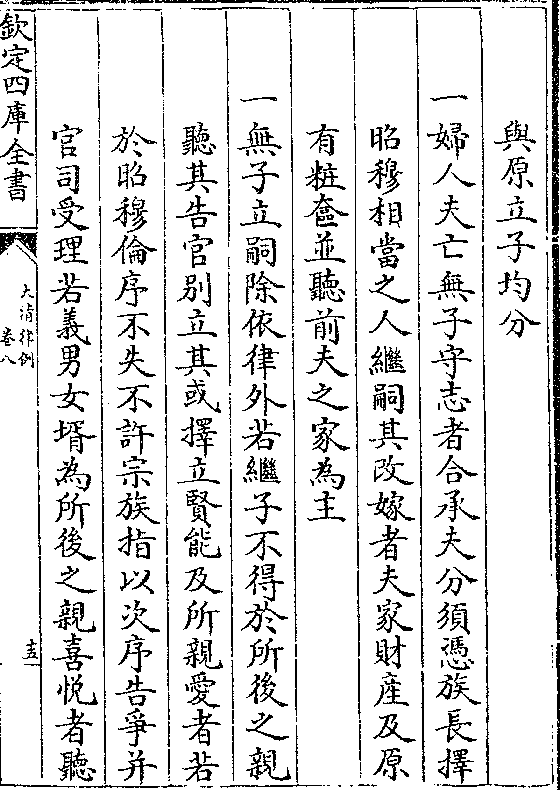 與原立子均分
一婦人夫亡無子守志者合承夫分須憑族長擇
昭穆相當之人繼嗣其改嫁者夫家財產及原
有粧奩並聽前夫之家為主
一無子立嗣除依律外若繼子不得於所後之親
聽其告官別立其或擇立賢能及所親愛者若
於昭穆倫序不失不許宗族指以次序告爭并
官司受理若義男女壻為所後之親喜悅者聽
欽定四庫全書
大清律例
卷八
十五